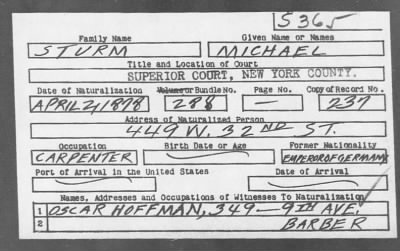 S 365
Family Name Given Name or Names
STURM MICHAEL
Title and Location of Court
SUPERIOR COURT, NEW YORK COUNTY.
Date of Naturalization Volume or Bundle No. Page No. Copy of Record No.
APRIL 2, 1878 288 — 237
Address of Naturalized Person
449 W. 32ND ST.
Occupation Birth Date or Age Former Nationality
CARPENTER EMPEROR OF GERMANY
Port of Arrival in the United States Date of Arrival
Names, Addresses and Occupations of Witnesses To Naturalization
1 OSCAR HOFFMAN, 349 — 9TH AVE.
2 BARBER